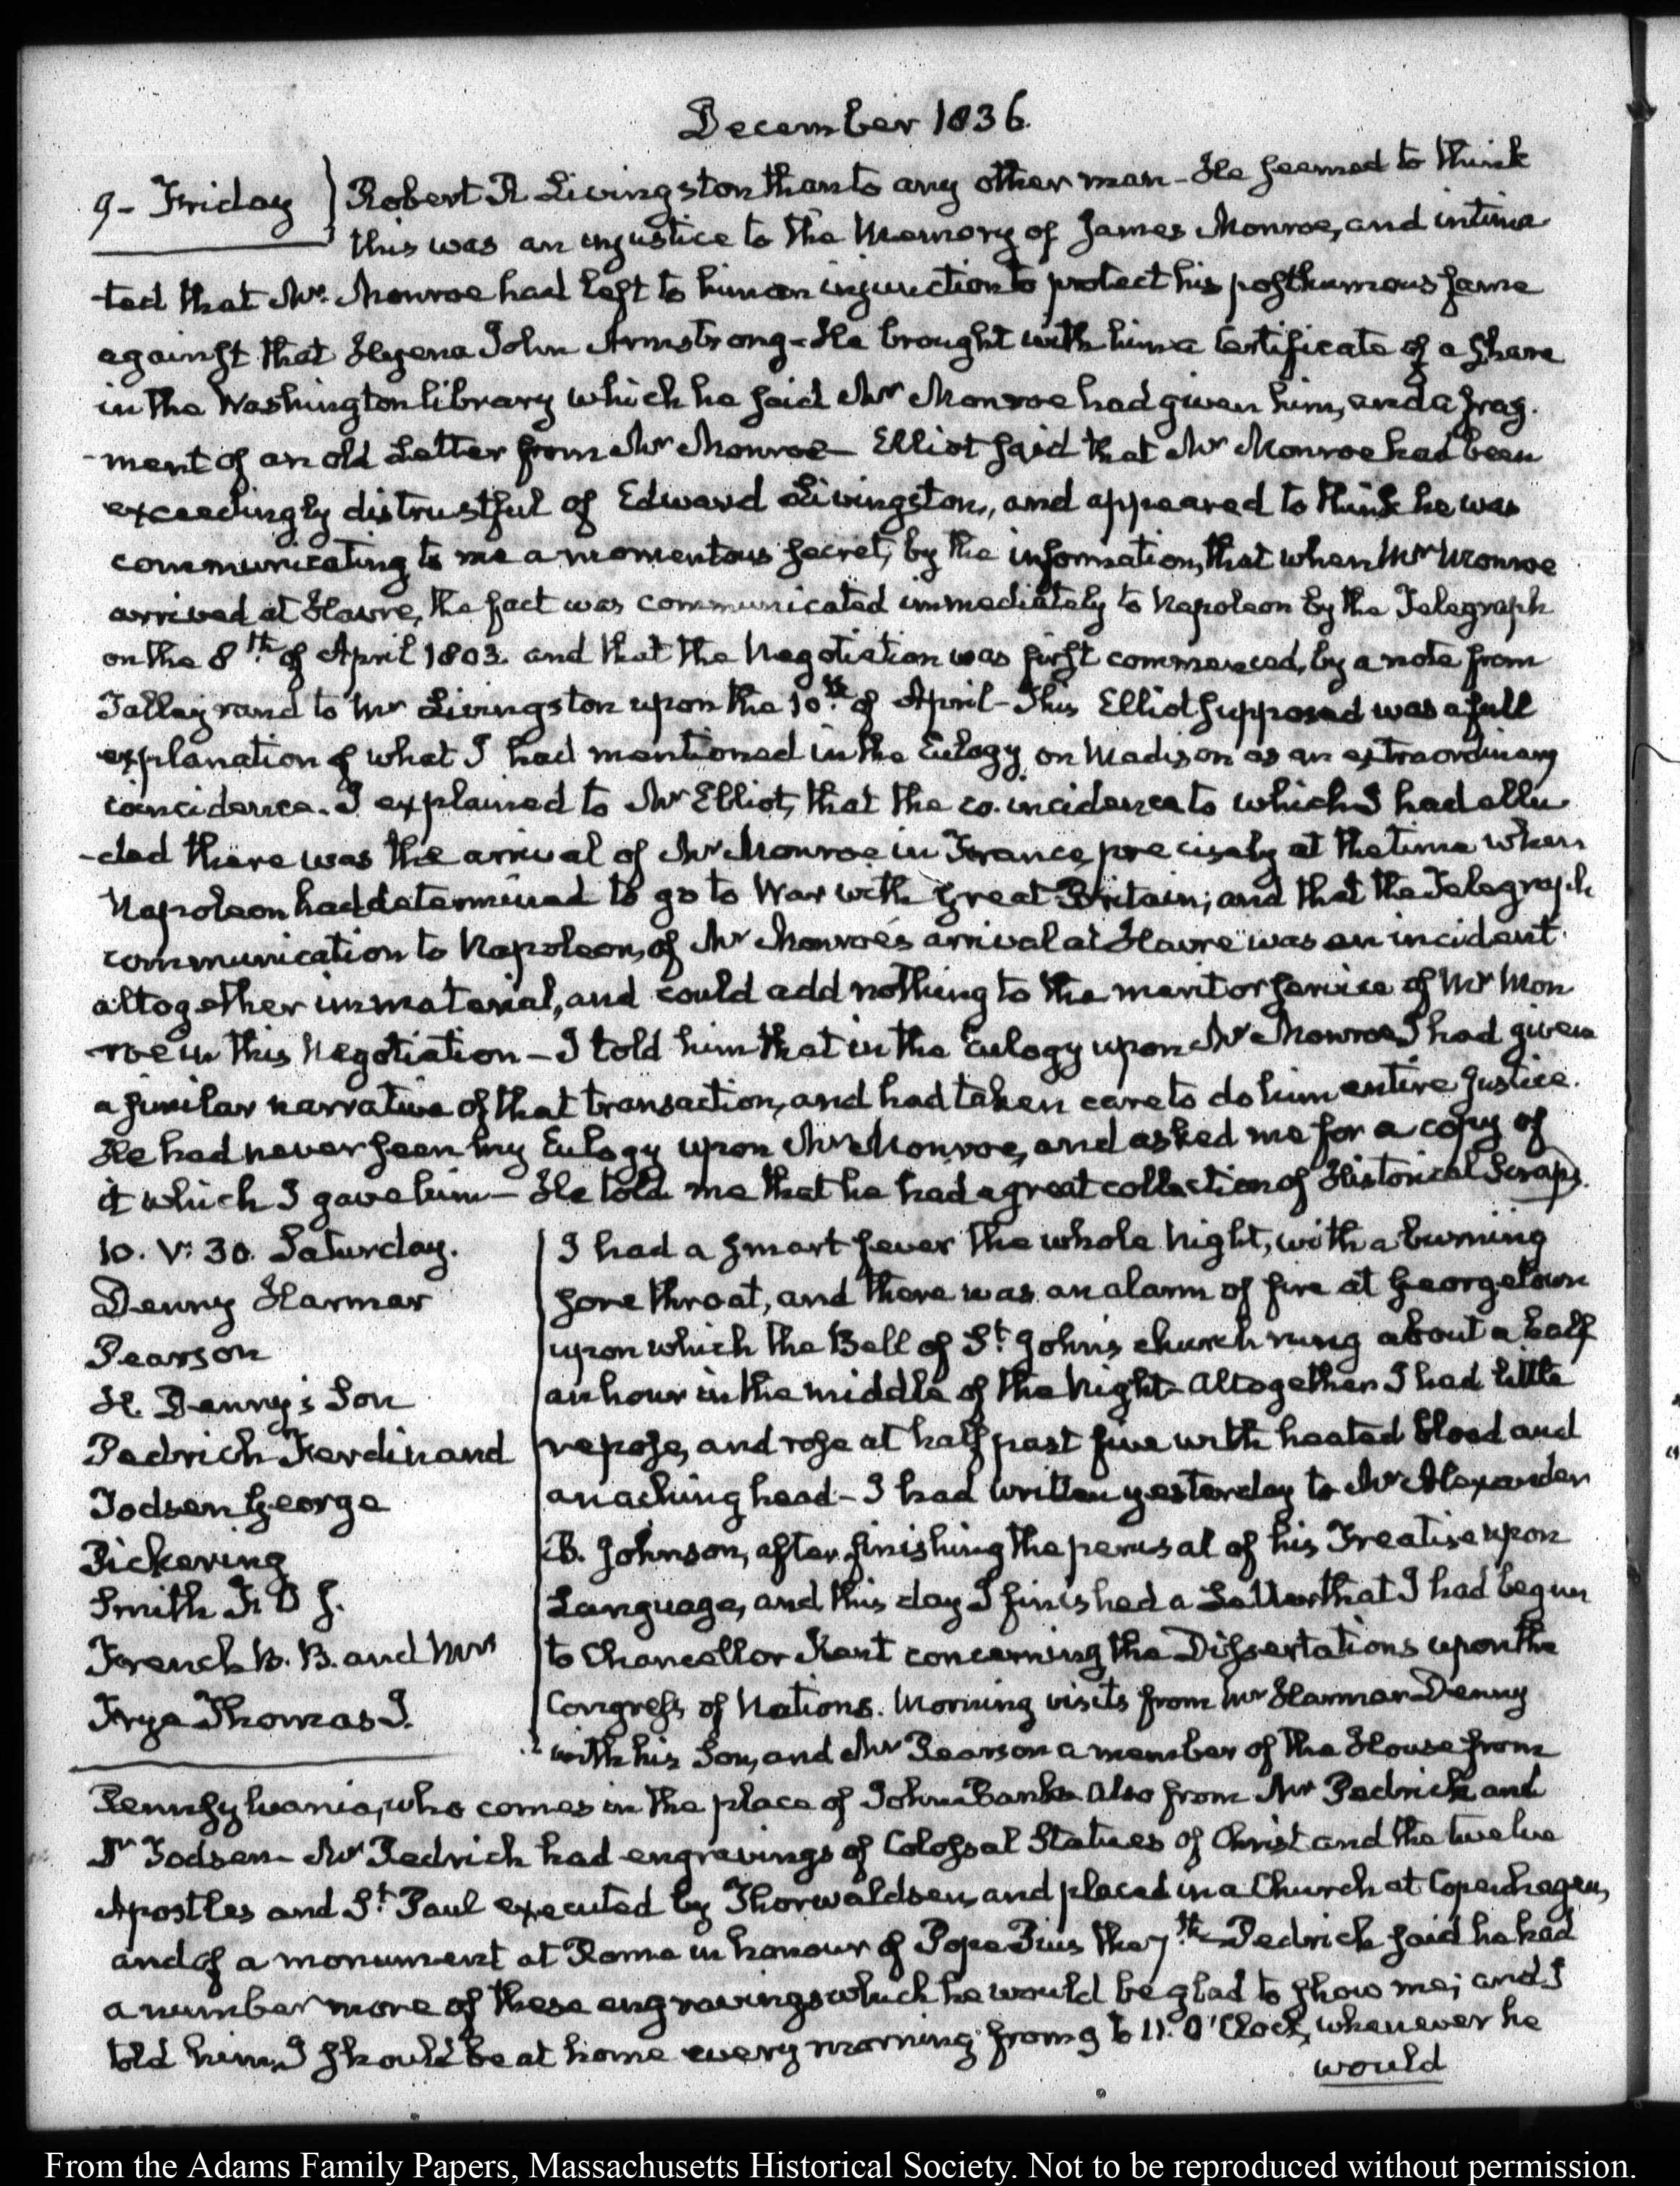 December 1836.
9 - Friday } Robert R Livingston than to any other man - He seemed to think
this was an injustice to the Memory of James Monroe, and intima
-ted that Mr. Monroe had left to him an injunction to protect his posthumous fame
against that Hyena John Armstrong - He brought with him a Certificate of a share
in the Washington library which he said Mr Monroe had given him, and a frag-
-ment of an old Letter from Mr Monroe - Elliot said that Mr Monroe had been
exceedingly distrustful of Edward Livingston, and appeared to think he was
communicating to me a momentous secret, by the information, that when Mr Monroe
arrived at Havre, the fact was communicated immediately to Napoleon by the Telegraph
on the 8th. of April 1803. and that the Negotiation was first commenced, by a note from
Talleyrand to Mr Livingston upon the 10th. of April - This Elliot supposed was a full
explanation of what I had mentioned in the Eulogy on Madison as an extraordinary
coincidence. I explained to Mr Elliot, that the co-incidence to which I had allu
-ded there was the arrival of Mr Monroe in France, precisely at the time when
Napoleon had determined to go to War with Great Britain; and that the Telegraph
communication to Napoleon, of Mr Monroe's arrival at Havre was an incident
altogether immaterial, and could add nothing to the merit or service of Mr Mon
-roe in this Negotiation - I told him that in the Eulogy upon Mr Monroe, I had given
a similar narrative of that transaction, and had taken care to do him entire Justice.
He had never seen my Eulogy upon Mr Monroe, and asked me for a copy of
it which I gave him - He told me that he had a great collection of Historical Scraps.
10. V: 30. Saturday.
Denny Harmar
Pearson
H. Denny's Son
Pedrich Ferdinand
Todsen George
Pickering
Smith F. O J.
French B. B. and Mrs
Frye Thomas J.
I had a smart fever the whole Night, with a burning
sore throat, and there was an alarm of fire at Georgetown
upon which the Bell of St. John's church rung about a half
an hour in the middle of the Night - Altogether I had little
repose, and rose at half past five with heated blood and
an aching head - I had written yesterday to Mr Alexander
B. Johnson, after finishing the perusal of his Treatise upon
Language, and this day I finished a Letter that I had begun
to Chancellor Kent concerning the Dissertations upon the
Congress of Nations. Morning visits from Mr Harmar Denny
with his Son, and Mr Pearson a member of the House from
Pennsylvania, who comes in the place of John Banks. Also from Mr Pedrick and
Dr Todsen - Mr Pedrich had engravings of Colossal Statues of Christ and the twelve
Apostles and St. Paul executed by Thorwaldsen, and placed in a Church at Copenhagen,
and of a monument at Rome in honour of Pope Pius the 7th. - Pedrich said he had
a number more of these engravings which he would be glad to show me; and I
told him, I should be at home every morning from 9 to 11. O'Clock, whenever he
would
From the Adams Family Papers, Massachusetts Historical Society. Not to be reproduced without permission.